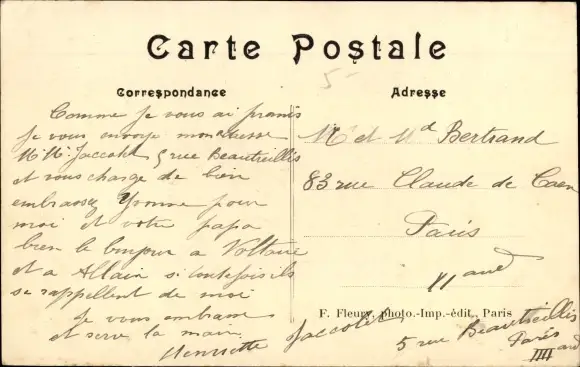 Carte Postale
Correspondance
Comme je vous ai promis
je vous envoye mon adresse
Mr Me Jaccotet 5 rue Beautreillis
et vous charge de bien
embrassez Yvonne pour
moi et votre papa
bien le bonjour a Voltaire
et a Allain si toutefois ils
se rappellent de moi
Je vous embrasse
et serre la main
Henriette Jaccotet
5 rue Beautreillis
Paris
IIII ard
5-
Adresse
Mr et Md Bertrand
83 rue Claude de Caen
Paris
XI ard
F. Fleury, photo.-Imp.-édit., Paris